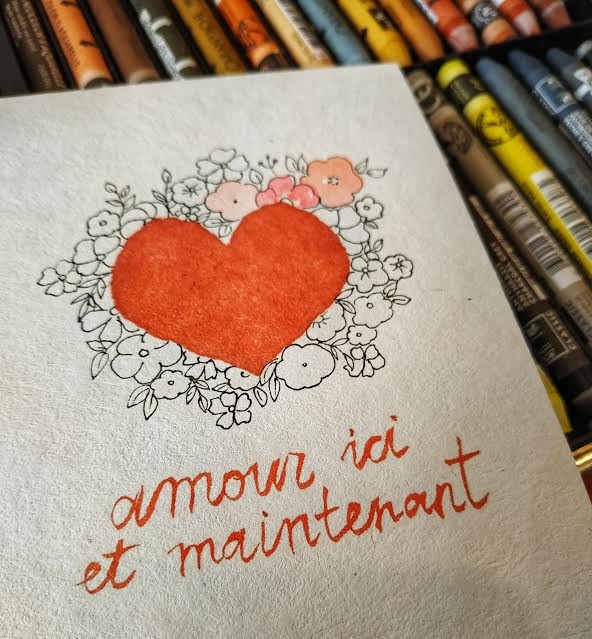 amour ici
et maintenant